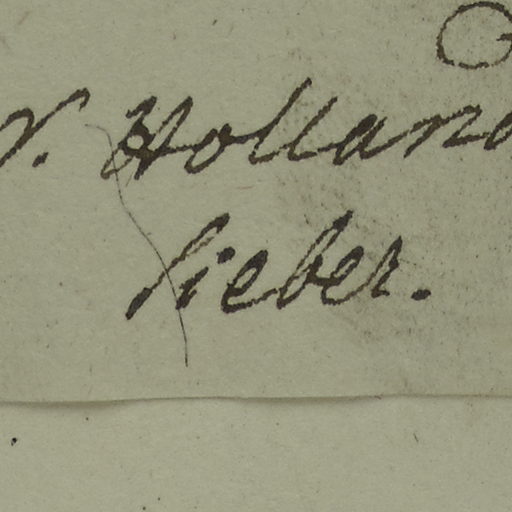 N. Holland
Sieber.